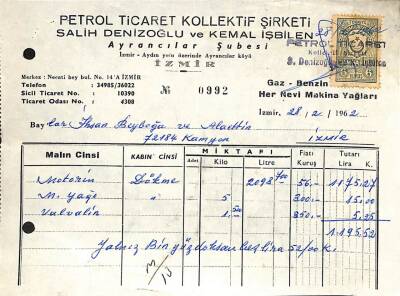 PETROL TİCARET KOLLEKTİF ŞİRKETİ
SALİH DENİZOĞLU ve KEMAL İŞBİLEN
Ayrancılar Şubesi
İzmir - Aydın yolu üzerinde Ayrancılar köyü
İZMİR
PETROL TİCARET
Kollektif
S. Denizoğlu
Merkez : Necati bey bul. No. 14/A İZMİR
Telefon : 34985/36022
Sicil Ticaret No: 10390
Ticaret Odası No: 4308
No 0992
Gaz - Benzin
Her Nevi Makina Yağları
İzmir, 28 / 2 / 1962
Bay lar, İhsan Beyboğa ve Alaettin
72184 Kamyon İzmir
Malın Cinsi KABIN CİNSİ MİKTARI Fiatı Tutarı
Adet Kilo Litre Kuruş Lira K.
Motorin Dökme 2098,700 56,- 1175.27
M. yağı " 5 300,- 15,00
Valvalin 1,500 350,- 5,25
1195,52
Yalnız Bin yüz doksan beş lira 52/00 K.